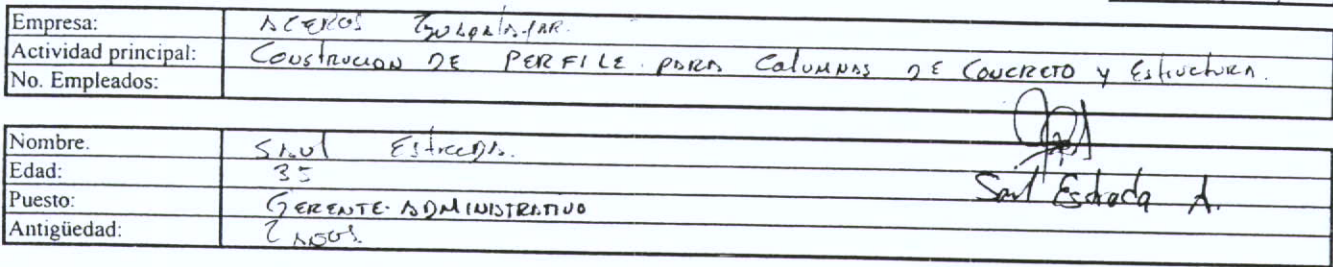 Empresa: ACEROS
Actividad principal: Construcion DE PERFILE PARA Columnas DE CONCRETO y Estructura.
No. Empleados:
Nombre. Saul Estrada.
Edad: 35
Puesto: GERENTE ADMINISTRATIVO
Saul Estrada A.
Antigüedad: 2 AÑOS.